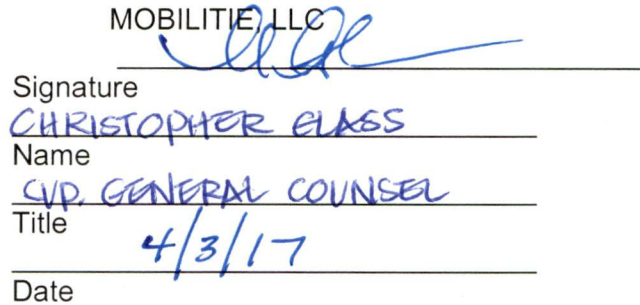 MOBILITIE, LLC
Signature
CHRISTOPHER GLASS
Name
SVP. GENERAL COUNSEL
Title
4/3/17
Date